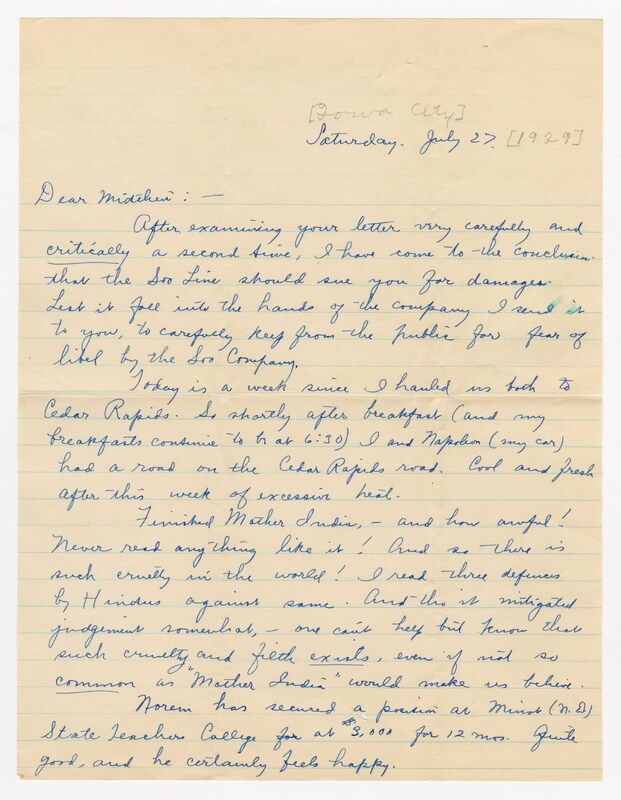 [Iowa City]
Saturday. July 27. [1929]
Dear Midtchen: —
After examining your letter very carefully and
critically a second time, I have come to the conclusion
that the Soo Line should sue you for damages.
Lest it fall into the hands of the company I send it
to you, to carefully keep from the public for fear of
libel by the Soo Company.
Today is a week since I hauled us both to
Cedar Rapids. So shortly after breakfast (and my
breakfasts continue to be at 6:30) I and Napoleon (my car)
had a road on the Cedar Rapids road. Cool and fresh
after this week of excessive heat.
Finished Mother India, — and how awful!
Never read anything like it! And so there is
such cruelty in the world! I read three defences
by Hindus against same. And tho it mitigated
judgement somewhat, — one can't help but know that
such cruelty and filth exists, even if not so
common as "Mother India" would make us believe.
Norem has secured a position at Minot (N.D.)
State Teachers College for at $3,000 for 12 mos. Quite
good, and he certainly feels happy.